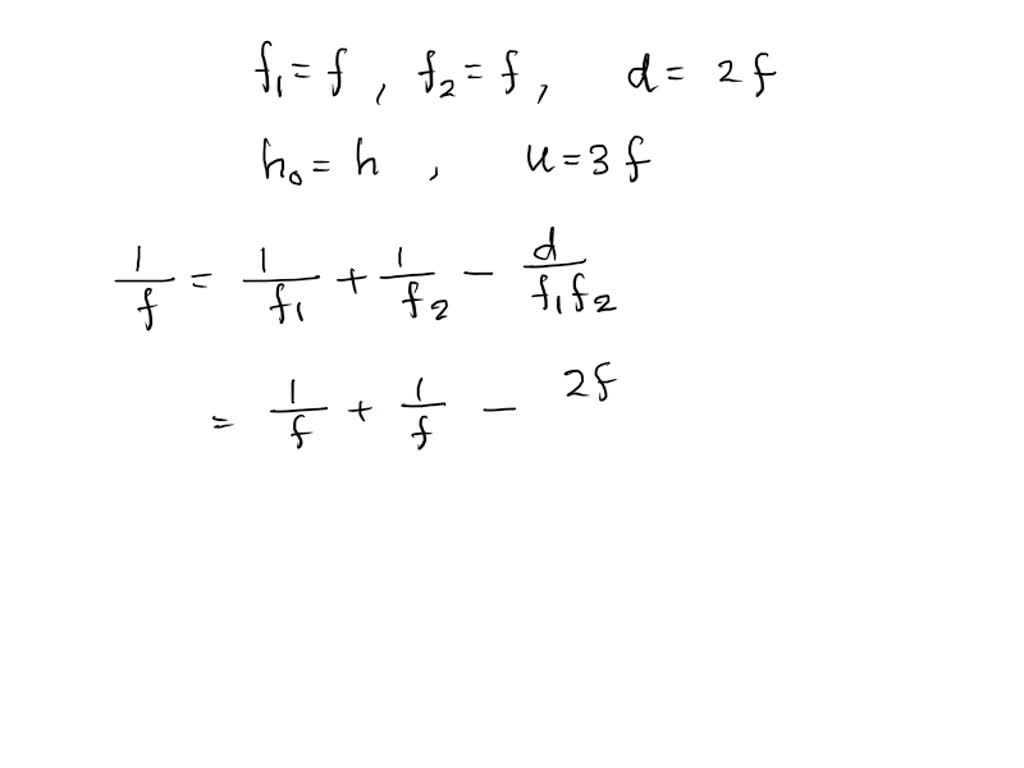 f₁ = f , f₂ = f , d = 2f
h₀ = h , u = 3f
1/f = 1/f₁ + 1/f₂ − d/f₁f₂
= 1/f + 1/f − 2f